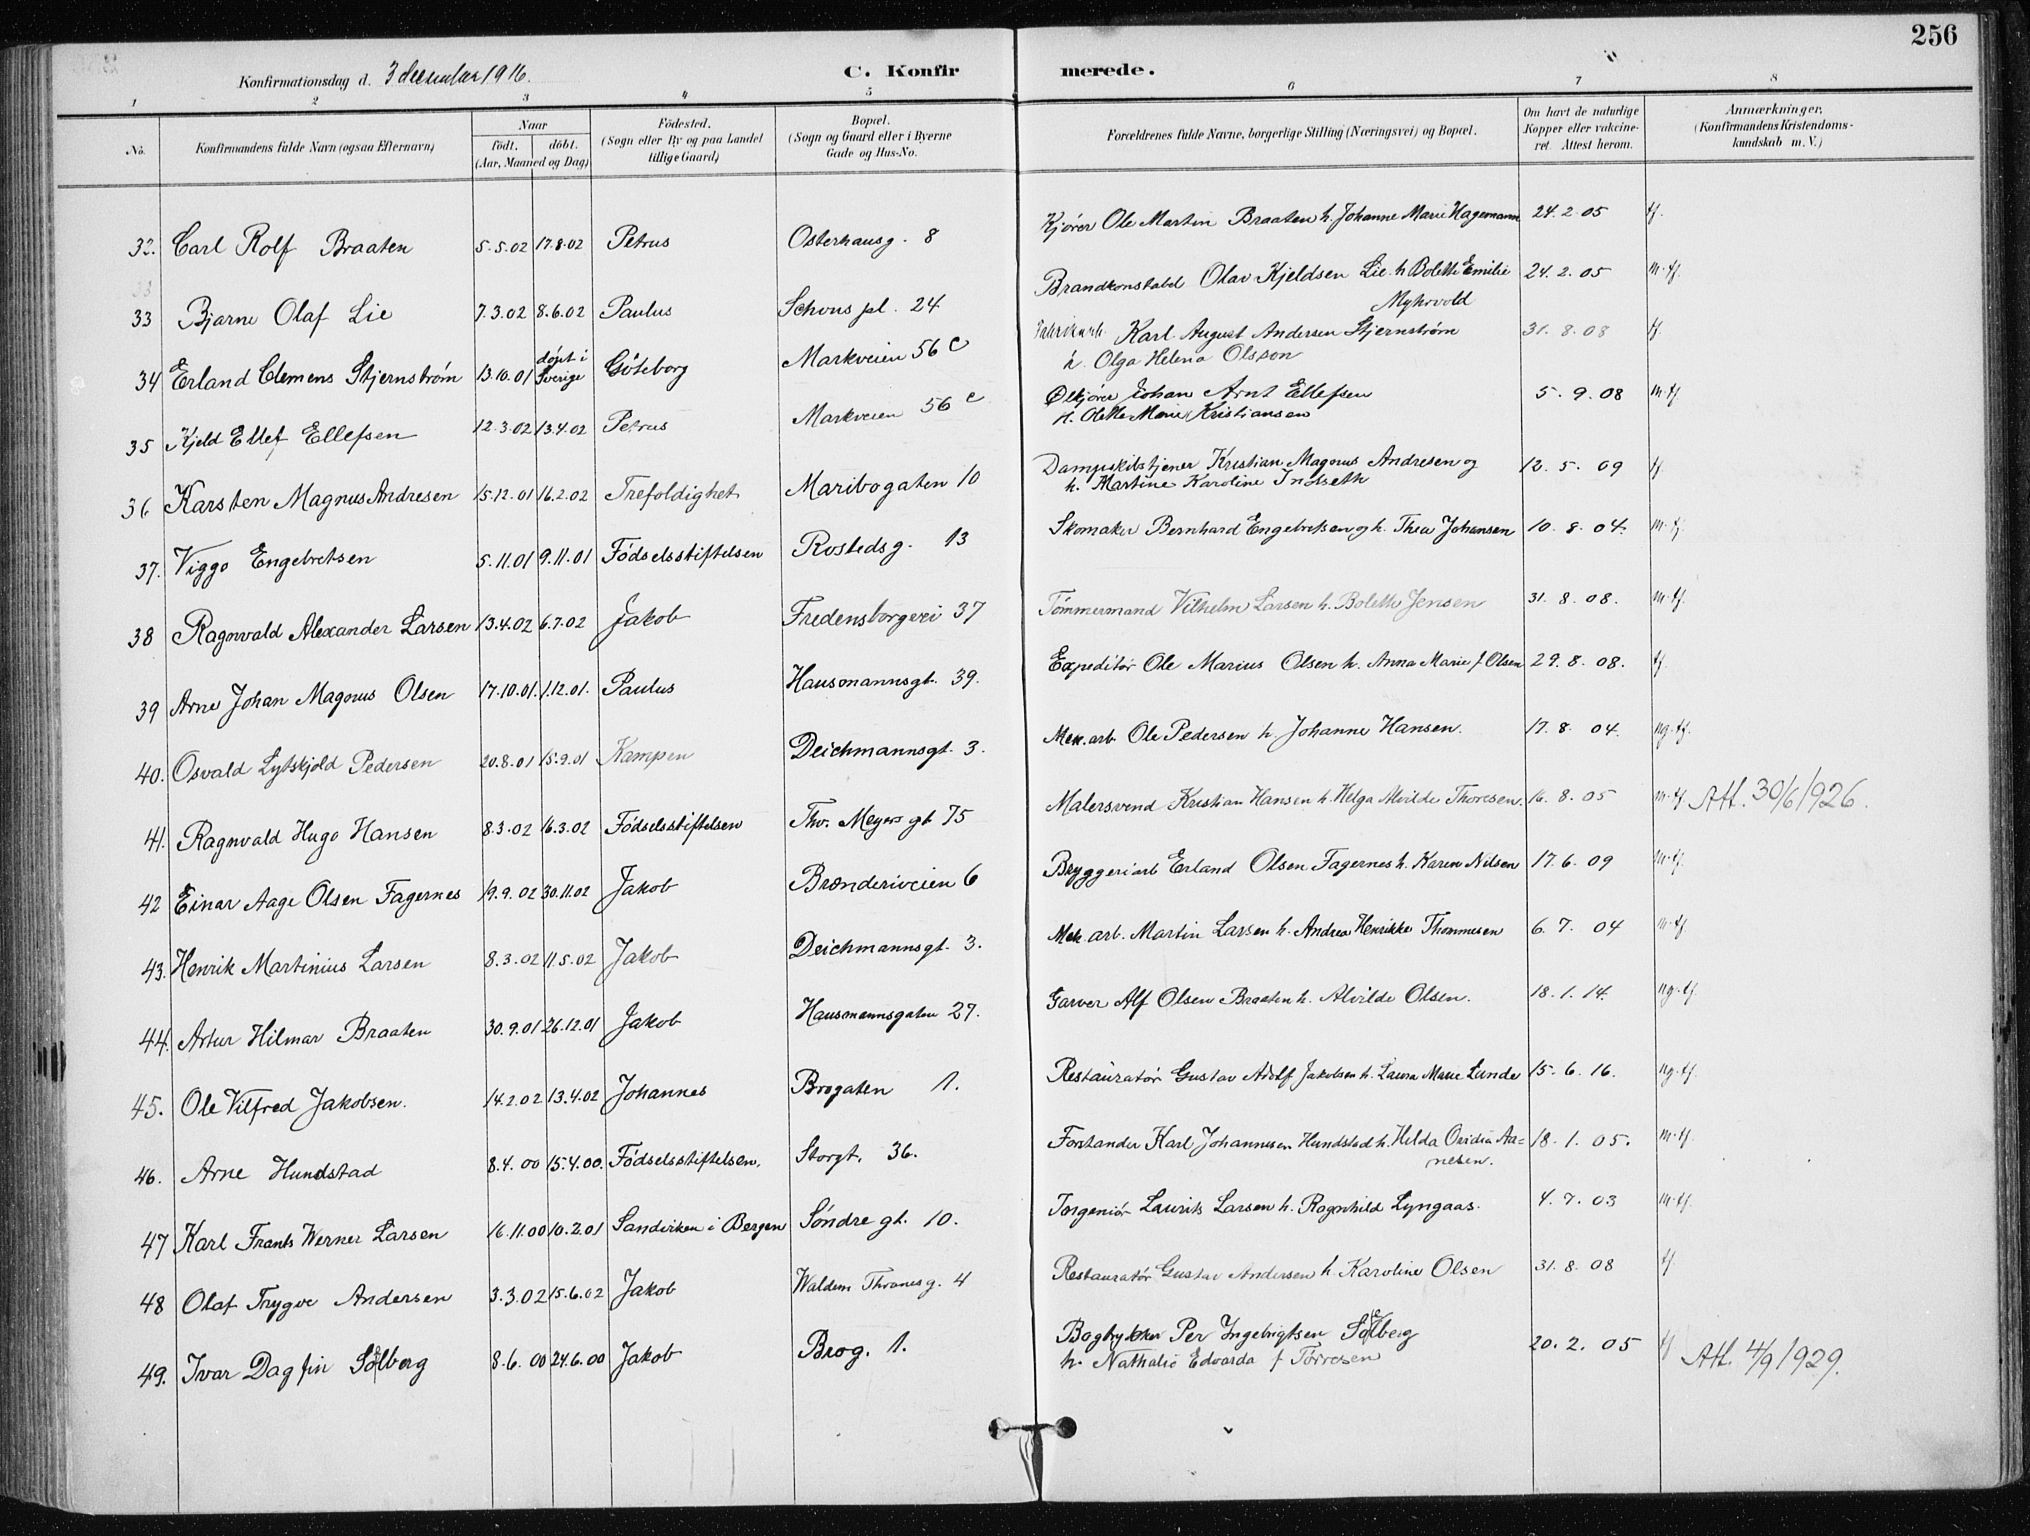 256
Konfirmationsdag d. 3 december 1916.
C. Konfirmerede.
1 2 3 4 5 6 7 8
No. Konfirmandens fulde Navn (ogsaa Efternavn) Naar født. døbt. (Aar, Maaned og Dag) Fødested. (Sogn eller By og paa Landet tillige Gaard) Bopæl. (Sogn og Gaard eller i Byerne Gade og Hus-No. Forældrenes fulde Navne, borgerlige Stilling (Næringsvei) og Bopæl. Om havt de naturlige Kopper eller vakcineret. Attest herom. Anmærkninger. (Konfirmandens Kristendomskundskab m. V.)
32. Carl Rolf Braaten 5.5.02 17.8.02 Petrus Osterhausg. 8 Kjører Ole Martin Braaten h. Johanne Marie Hagemann 24.2.05 tf.
33 Bjarne Olaf Lie 7.3.02 8.6.02 Paulus Schous pl. 24 Brandkonstabel Olav Kjeldsen Lie h. Bolette Emilie Myhrvold 24.2.05 m.tf.
34 Erland Clemens Stjernstrøm 13.10.01 døpt i Sverige Göteborg Markveien 56 c Karl August Andersen Stjernstrøm h. Olga Helena Olsson 31.8.08 tf
35 Kjeld Ellef Ellefsen 12.3.02 13.4.02 Petrus Markveien 56 c Ølkjører Johan Arnt Ellefsen h. Olette Marie Kristiansen 5.9.08 m.tf
36 Karsten Magnus Andresen 15.12.01 16.2.02 Trefoldighet Maribogaten 10 Dampskibstjener Kristian Magnus Andresen og h. Martine Karoline Indseth 12.5.09 tf.
37. Viggo Engebretsen 5.11.01 9.11.01 Fødselsstiftelsen Rostedsg. 13 Skomaker Bernhard Engebretsen og h. Thea Johansen 10.8.04. m.tf.
38 Ragnvald Alexander Larsen 13.4.02 6.7.02 Jakob Fredensborgvei 37 Tømmermand Vilhelm Larsen h. Bolette Jensen 31.8.08. m.tf.
39 Arne Johan Magnus Olsen 17.10.01. 1.12.01. Paulus Hausmannsgt. 39. Expeditør Ole Marius Olsen h. Anna Marie f. Olsen 29.8.08. tf.
40. Osvald Lytskjold Pedersen 20.8.01 15.9.01 Kampen Deichmannsgt. 3. Mek.arb. Ole Pedersen h. Johanne Hansen. 17.8.04. ng.tf.
41. Ragnvald Hugo Hansen 8.3.02 16.3.02 Fødselsstiftelsen Thv. Meyers gt 75 Malersvend Kristian Hansen h. Helga Alvilde Thoresen. 16.8.05 m.tf Att. 30/6 1926.
42 Einar Aage Olsen Fagernes 19.9.02 30.11.02 Jakob Brænderiveien 6 Bryggeriarb Erland Olsen Fagernes h. Karen Nilsen 17.6.09 m.tf.
43. Henrik Martinius Larsen 8.3.02 11.5.02 Jakob Deichmannsgt. 3. Mek. arb. Martin Larsen h. Andrea Henrikke Thommesen 6.7.04 m.tf
44. Artur Hilmar Braaten 30.9.01 26.12.01 Jakob Hausmannsgaten 27. Garver Alf Olsen Braaten h. Alvilde Olsen. 18.1.14. ng.tf.
45. Ole Vilfred Jakobsen. 14.2.02 13.4.02 Johannes Brogaten 1. Restauratør Gustav Adolf Jakobsen h. Laura Marie Lunde 15.6.16. ng.tf.
46. Arne Hundstad 8.4.00 15.4.00. Fødselsstiftelsen. Storgt. 36. Forstander Karl Johannesen Hundstad h. Hilda Ovidia Aanesen. 18.1.05. m.tf.
47 Karl Frants Werner Larsen 16.11.00 10.2.01 Sandviken i Bergen Søndre gt. 10. Ingeniør Laurits Larsen h. Ragnhild Lyngaas. 4.7.03 m.tf.
48 Olaf Trygve Andersen 3.3.02 15.6.02 Jakob Waldem Thranesg. 4 Restauratør Gustav Andersen h. Karoline Olsen 31.8.08 tf
49. Ivar Dagfin Solberg 8.6.00 24.6.00 Jakob Brog. 1. Bogtrykker Per Ingebrigtsen Solberg h. Nathalie Edvarda f Tørresen 20.2.05 tf Att. 4/9 1929.